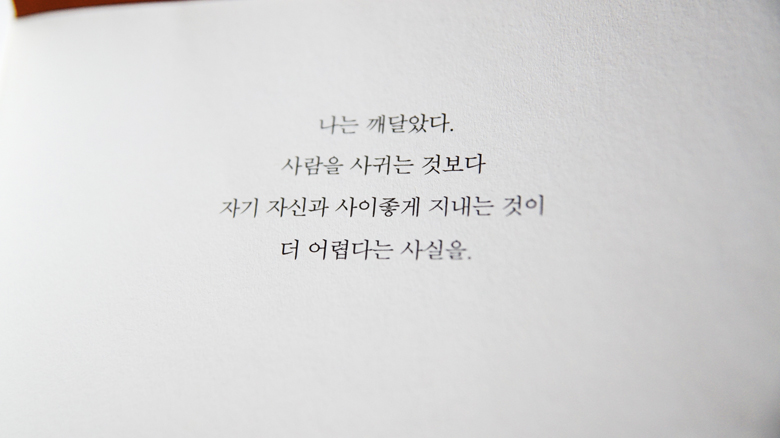 나는 깨달았다.
사람을 사귀는 것보다
자기 자신과 사이좋게 지내는 것이
더 어렵다는 사실을.